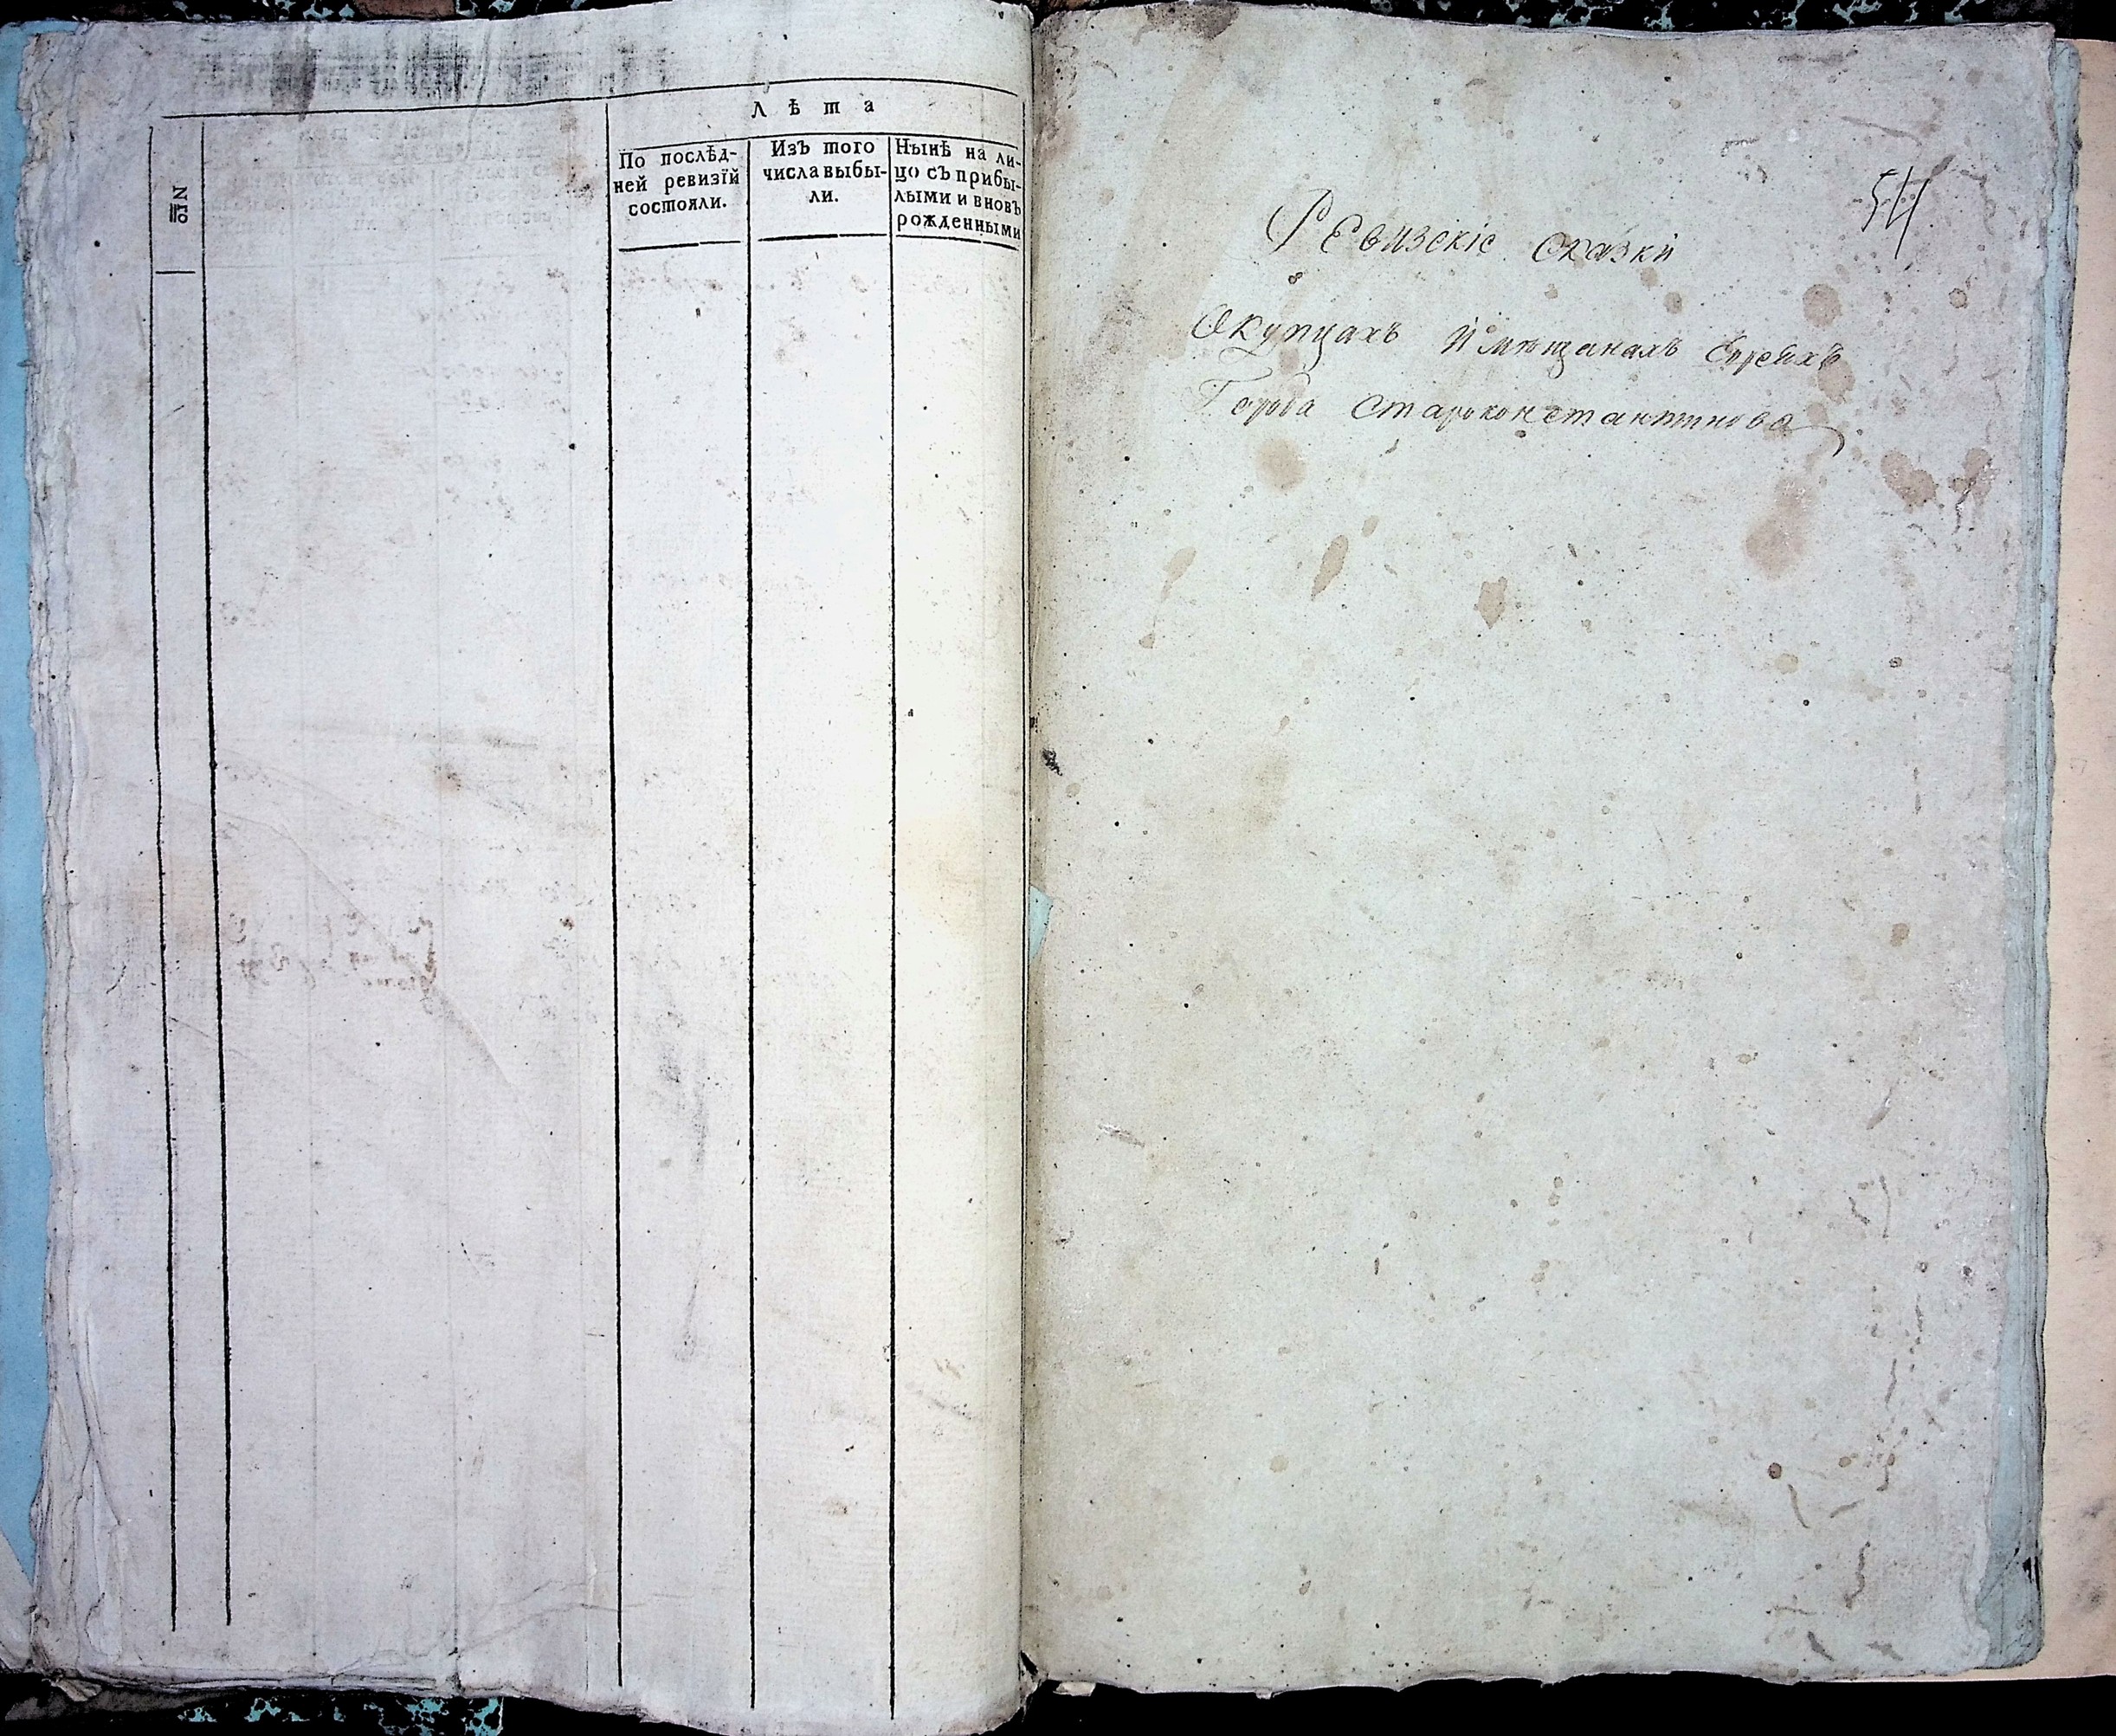 Лѣта
№
По послѣд-
ней ревизїй
состояли.
Изъ того
числа выбы-
ли.
Нынѣ на ли-
цо съ прибы-
лыми и вновь
рожденными
54
Ревизскіе Сказки
О Купцахъ И мѣщанахъ Евреяхъ
Города Староконстантинова